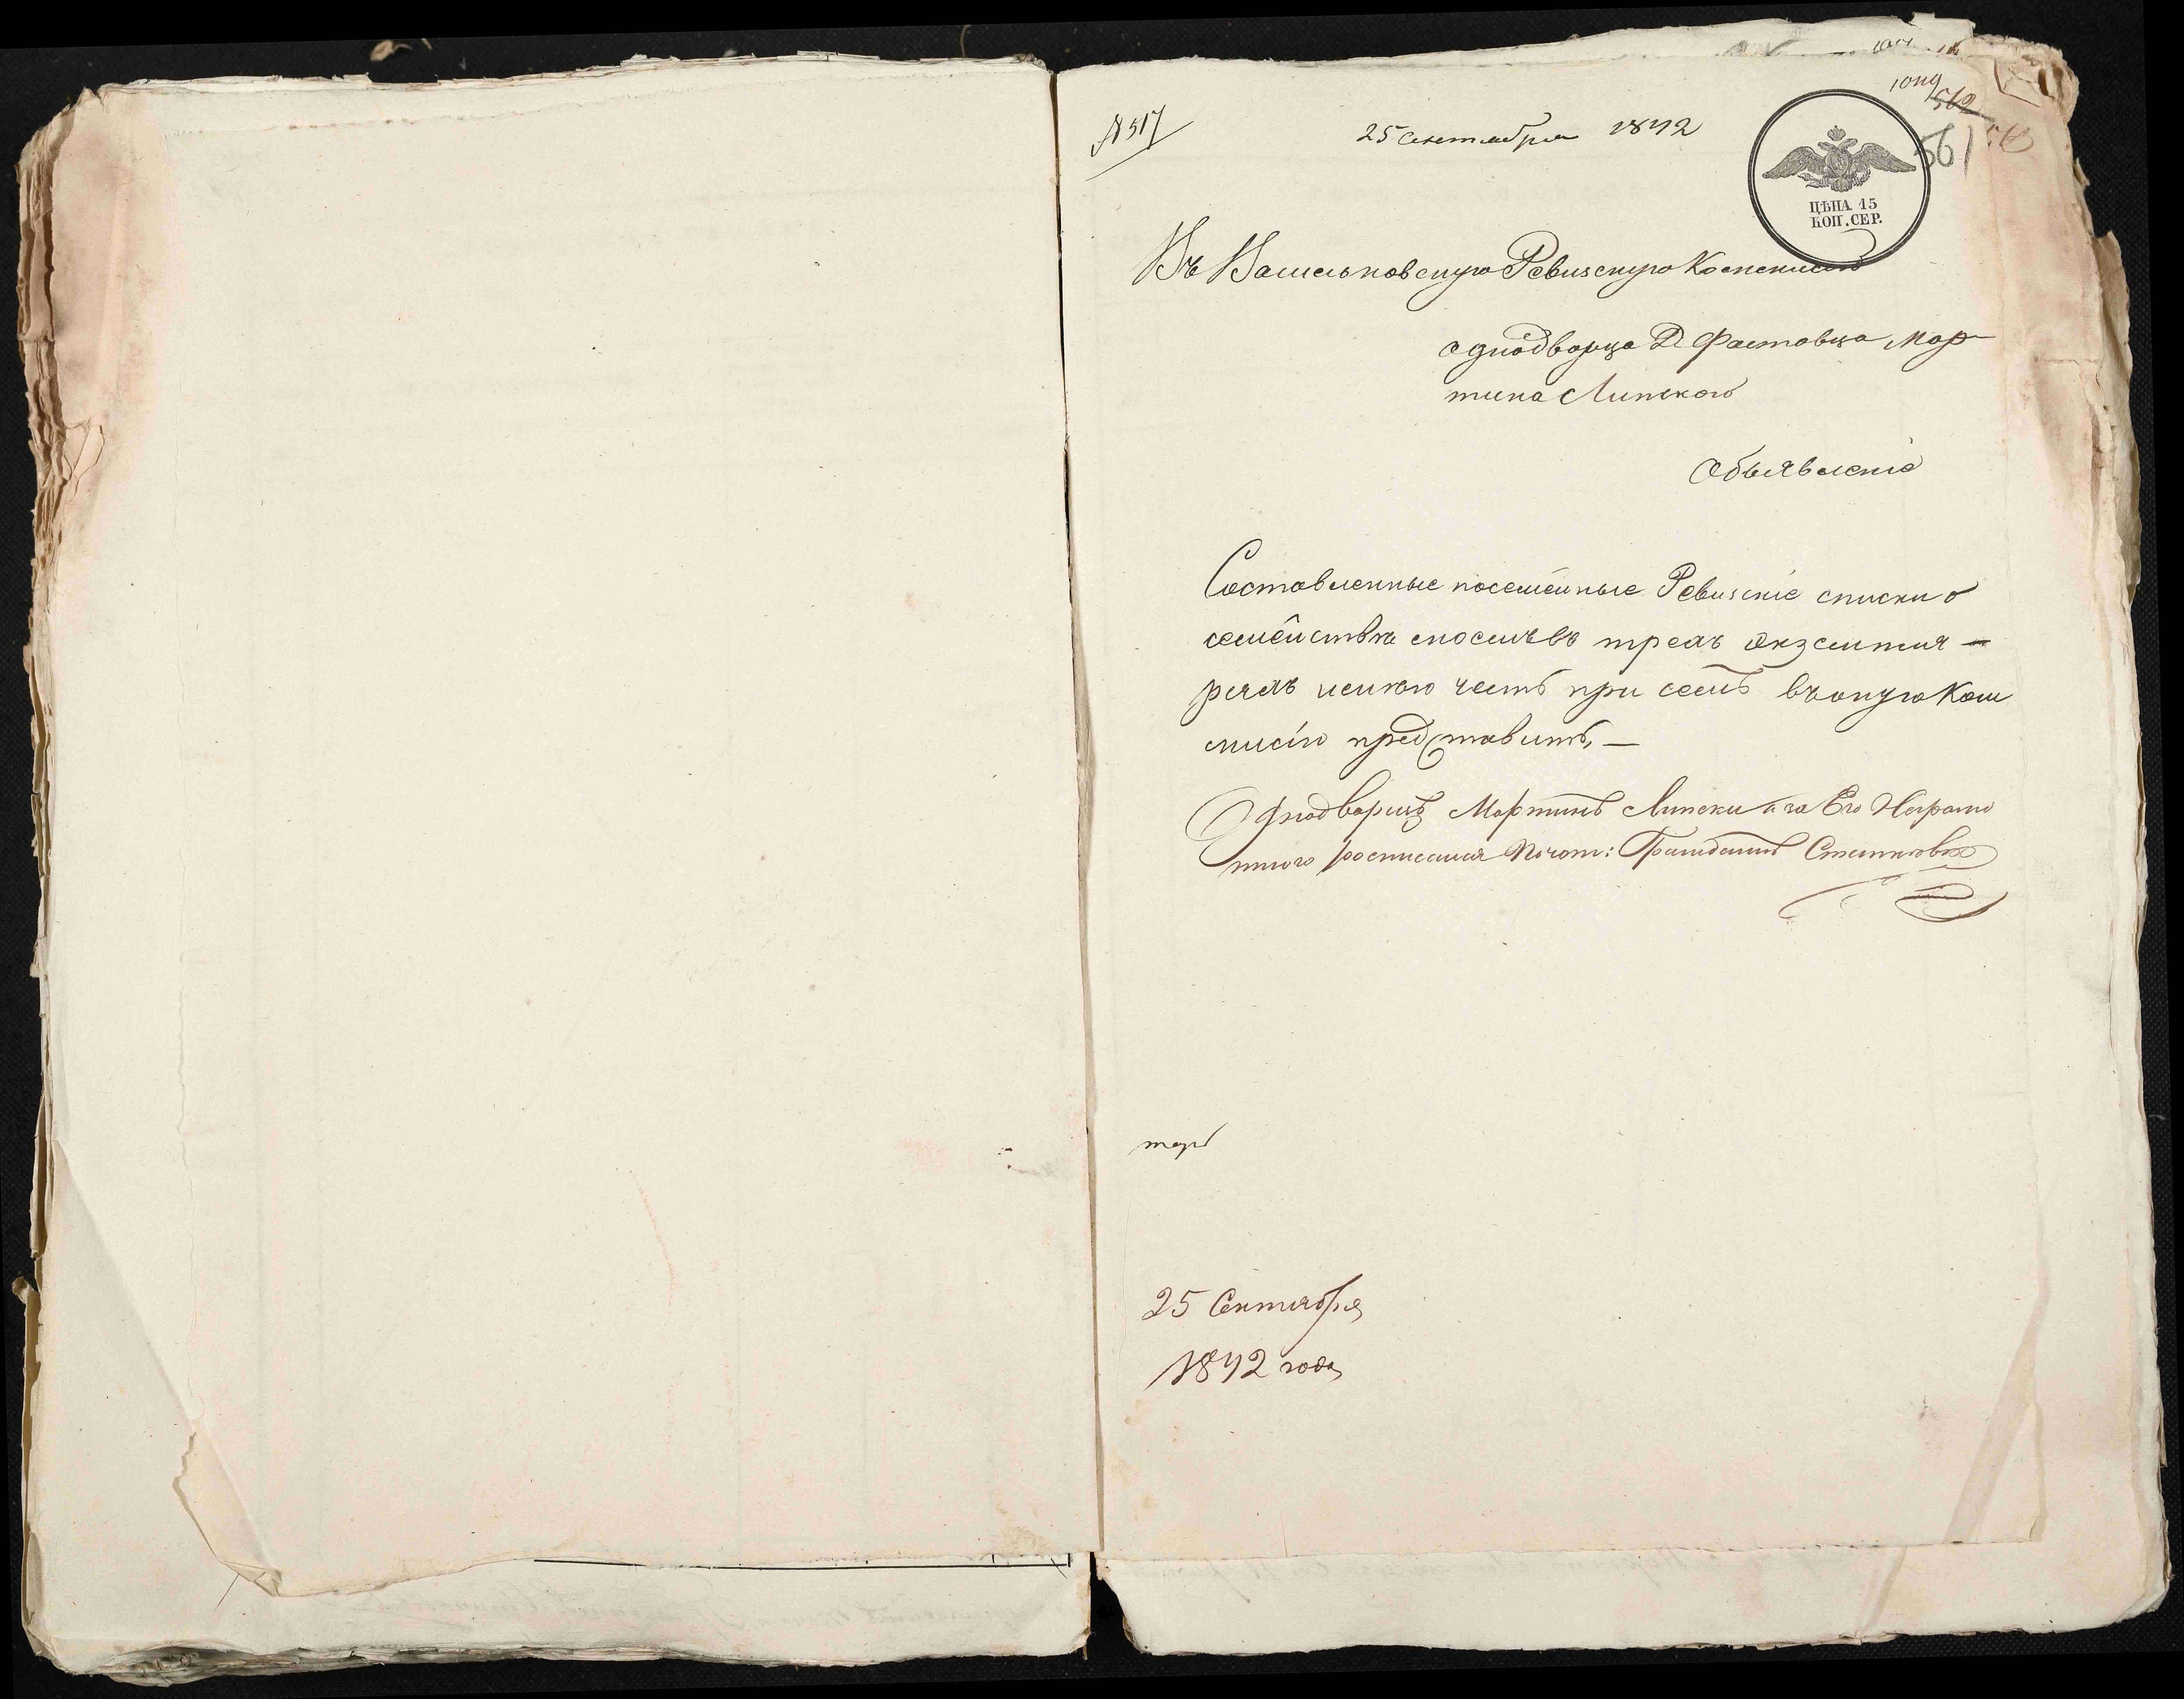 № 517
25 Сентября 1842
1049
562
561
ЦѢНА 15
КОП. СЕР.
Въ Васильковскую Ревизскую Коммисию
однодворца Д. Фастовца Мар
тина Липского
Объявленіе
Составленные посемейные Ревизскіе списки о
семействе моемъ въ трехъ экземпля-
рахъ имею честь при семъ въ оную Ком
мисію представить, —
Однодворецъ Мартинъ Липски а за Его Неграмо
тного росписался Почот: Гражданинъ
25 Сентября
1842 года